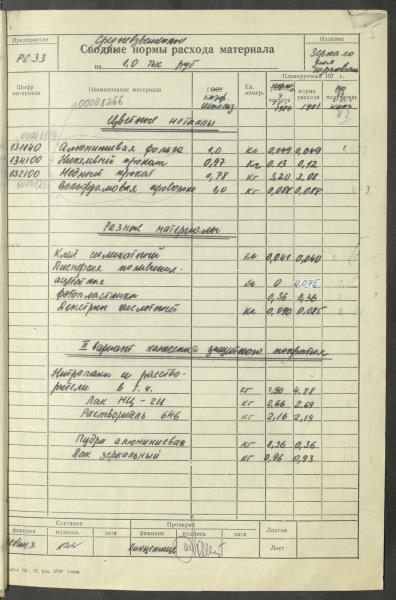 Предприятие
РС 33
Средневзвешенные
Сводные нормы расхода материала
на 1,0 тыс руб
Изделие
Зеркало
для
торговли
Шифр материала
Наименование
Ед. измер.
Планируемый 197 г.
норма расхода
1980 1981
00008266
Цветные металлы
131140 Алюминиевая фольга 1,0 Кг 0,049 0,049
134100 Никелевый прокат 0,97 Кг 0.13 0,12
132100 Медный прокат 0,78 Кг 3,20 3,08
Вольфрамовая проволока 1,0 Кг 0,088 0,088
Разные материалы
Клей силикатный Кг 0,041 0,040
Дисперсия поливинил-
ацетатная Кг 0 0,075
фотопластинки 0,36 0,36
Декстрин кислотный Кг 0,090 0,085
II вариант нанесения защитного покрытия
Нитролаки и раство-
рители в т.ч. кг 4.88
Лак НЦ-218 кг 2,66 2,69
Растворитель 646 кг 2,16 2,19
Пудра алюминиевая кг 0,36 0,36
Лак зеркальный кг 0,96 0,93
Составил
Проверил
Листов
фамилия
подпись
дата
фамилия
подпись
дата
Лист